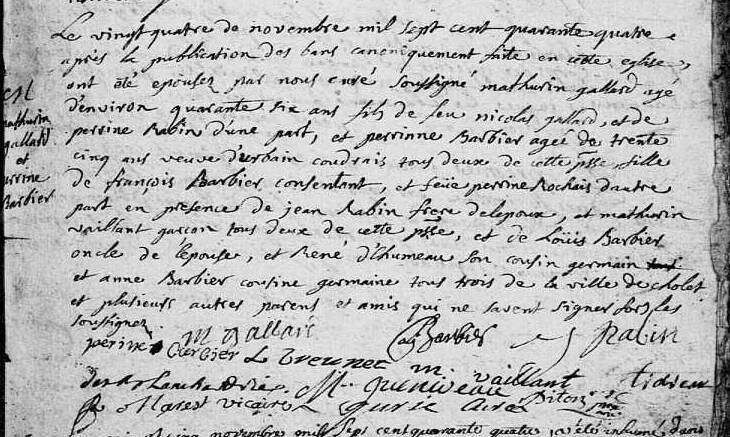 Le vingt quatre de novembre mil sept cent quarante quatre
après la publication des bans canoniquement faite en cette eglise,
ont été epousez par nous curé soussigné mathurin gallard agé
d'environ quarante six ans fils de feu nicolas gallard, et de
perrine Rabin d'une part, et perrinne Barbier ageé de trente
cinq ans veuve d'urbain coudrais tous deux de cette psse, fille
de françois Barbier consentant, et feüe perrine Rochais d'autre
part en presence de jean Rabin frere de lepoux, et mathurin
vaillant garçon tous deux de cette psse, et de Loüis Barbier
oncle de l'epouse, et René d'humeau son cousin germain
et anne Barbier cousine germaine tous trois de la ville de cholet
et plusieurs autres parens et amis qui ne savent signer fors les
soussignez
mathurin
gallard
et
perrine
Barbier
m gallard
Barbier
Rabin
perine
Barbier
m. vaillant
vicaire
novembre mil sept cent quarante quatre a été inhumé dans